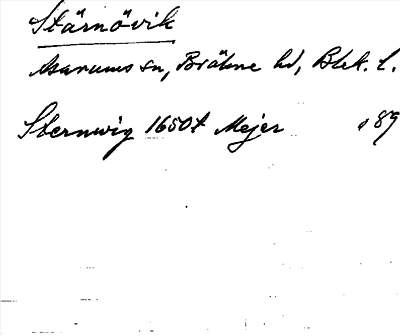 Stärnövik
Asarums sn, Bräkne hd, Blek. l.
Sternwig 1650t Mejer 89